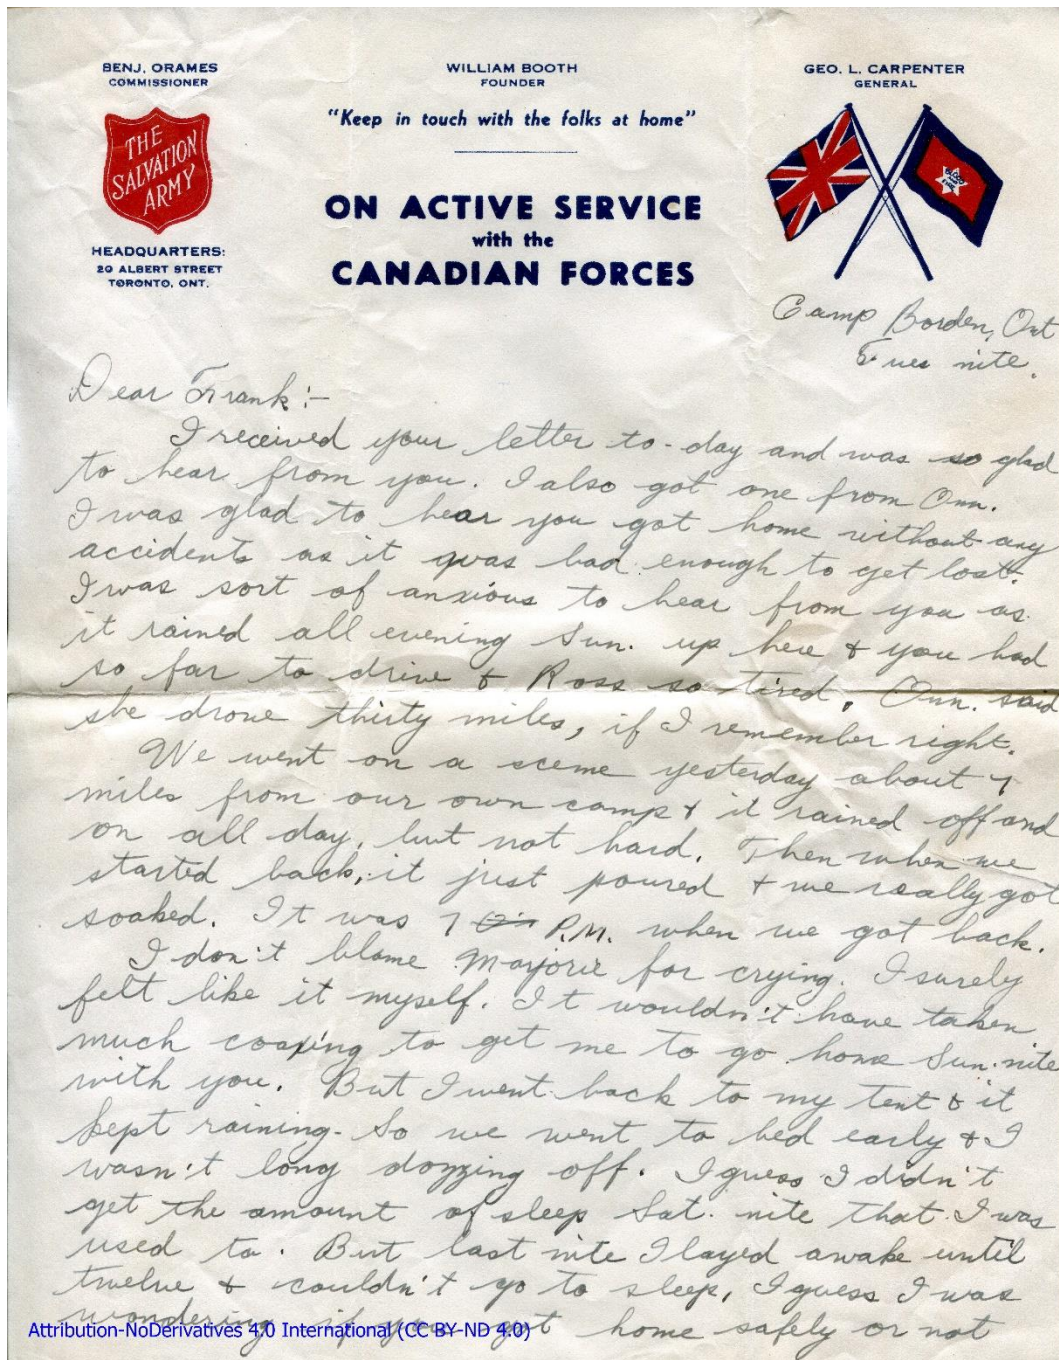 BENJ. ORAMES
COMMISSIONER
THE
SALVATION
ARMY
HEADQUARTERS:
20 ALBERT STREET
TORONTO, ONT.
WILLIAM BOOTH
FOUNDER
"Keep in touch with the folks at home"
ON ACTIVE SERVICE
with the
CANADIAN FORCES
GEO. L. CARPENTER
GENERAL
Camp Borden, Ont
Tues nite.
Dear Frank:-
I received your letter to-day and was so glad
to hear from you. I also got one from Onn.
I was glad to hear you got home without any
accidents as it was bad enough to get lost.
I was sort of anxious to hear from you as
it rained all evening Sun. up here & you had
so far to drive & Ross so tired, Onn. said
she drove thirty miles, if I remember right.
We went on a sceme yesterday about 7
miles from our own camp & it rained off and
on all day, but not hard. Then when we
started back, it just poured & we really got
soaked. It was 7 P.M. when we got back.
I don't blame Marjorie for crying. I surely
felt like it myself. It wouldn't have taken
much coaxing to get me to go home Sun. nite
with you. But I went back to my tent & it
kept raining. So we went to bed early & I
wasn't long dozzing off. I guess I didn't
get the amount of sleep Sat. nite that I was
used to. But last nite I layed awake until
twelve & couldn't go to sleep, I guess I was
wondering if you got home safely or not
Attribution-NoDerivatives 4.0 International (CC BY-ND 4.0)